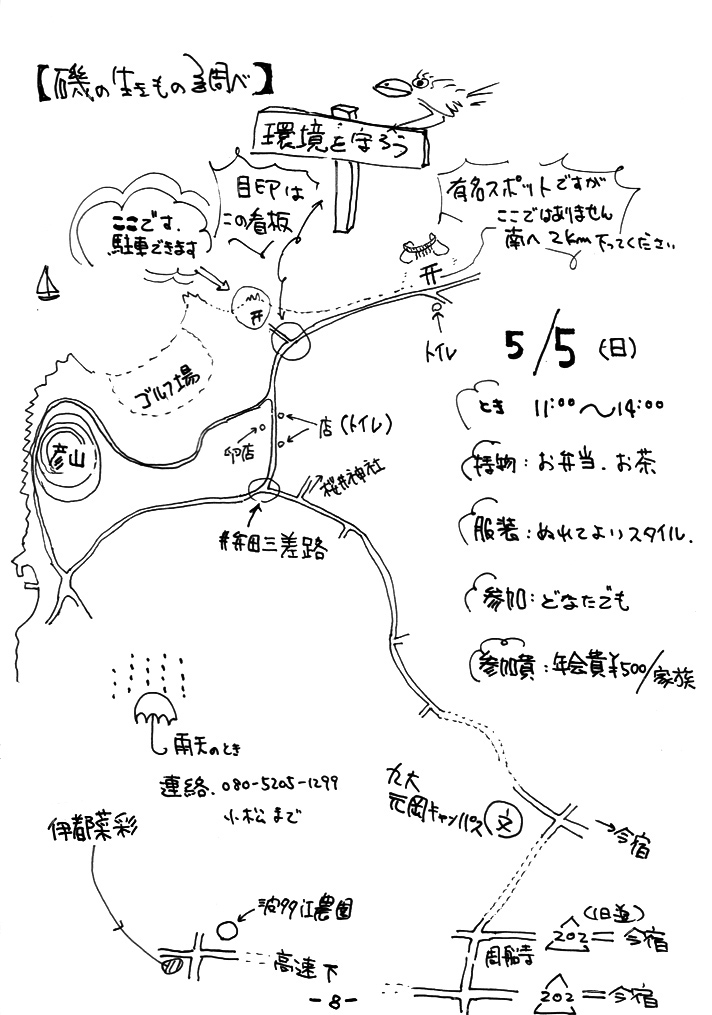 【磯の生きもの調べ】
環境を守ろう
目印は
この看板
有名スポットですが
ここではありません
南へ2km下ってください
ここです.
駐車できます
トイレ
5/5(日)
ゴルフ場
とき 11:00〜14:00
店(トイレ)
卯店
彦山
桜井神社
持物:お弁当.お茶
服装:ぬれてよいスタイル.
井田三差路
参加:どなたでも
参加費:年会費¥500/家族
雨天のとき
連絡.080-5205-1299
小松まで
九大
元岡キャンパス
文
→今宿
伊都菜彩
波多江農園
高速下
(旧道)
202 今宿
周船寺
202 今宿
-8-